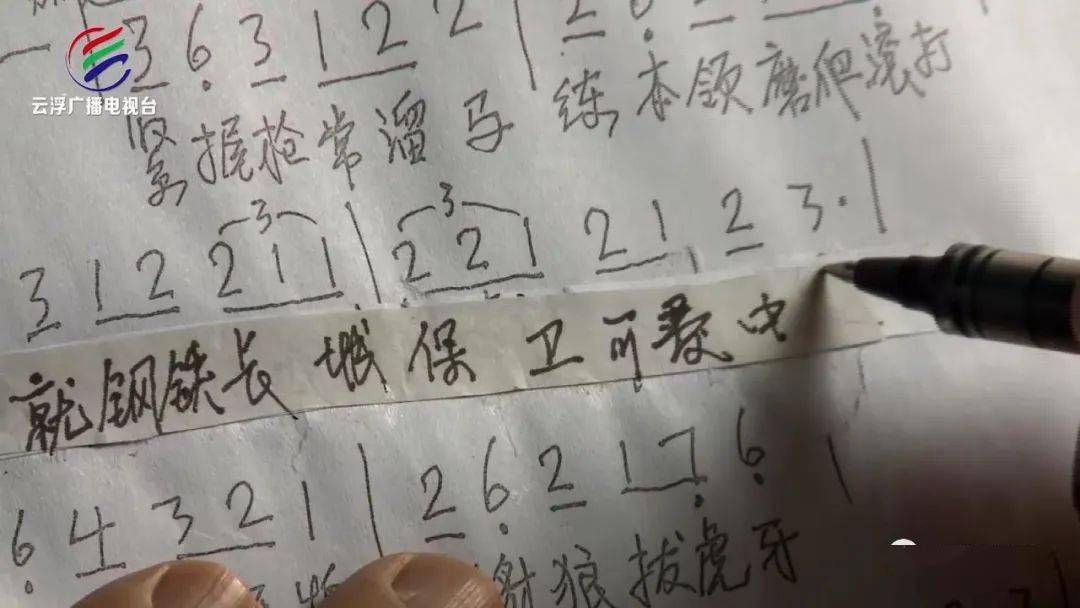 云浮广播电视台
3 6 3 1 2 2 | 2 6
紧握枪常溜马 练本领磨爬滚打
3 3
3 1 2 2 1 1 | 2 2 1 2 1 2 3 · |
就钢铁长城保卫可爱中
6 4 3 2 1 | 2 6 2 1 7 6 |
射狼拔虎牙